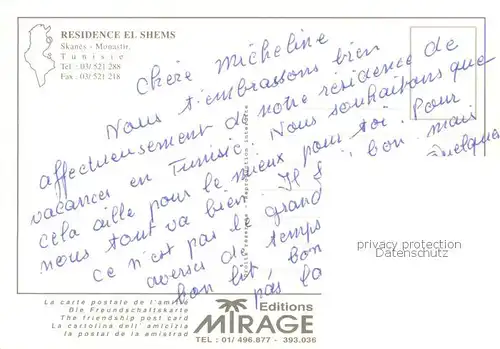 RESIDENCE EL SHEMS
Skanès - Monastir
Tunisie
Tel : 03/ 521 288
Fax : 03/ 521 218
Chère Micheline
Nous t'embrassons bien
affectueusement de notre résidence de
vacances en Tunisie. Nous souhaitons que
cela aille pour le mieux pour toi. Pour
nous tout va bien. Il f bon mais
ce n'est pas le grand quelques
averses de temps
bon lit, bon
pas la
privacy protection
Datenschutz
La carte postale de l'amitié
Die Freundschaftskarte
The friendship post card
La cartolina dell' amicizia
la postal de la amistad
Editions
MIRAGE
TEL : 01/ 496.877 - 393.036